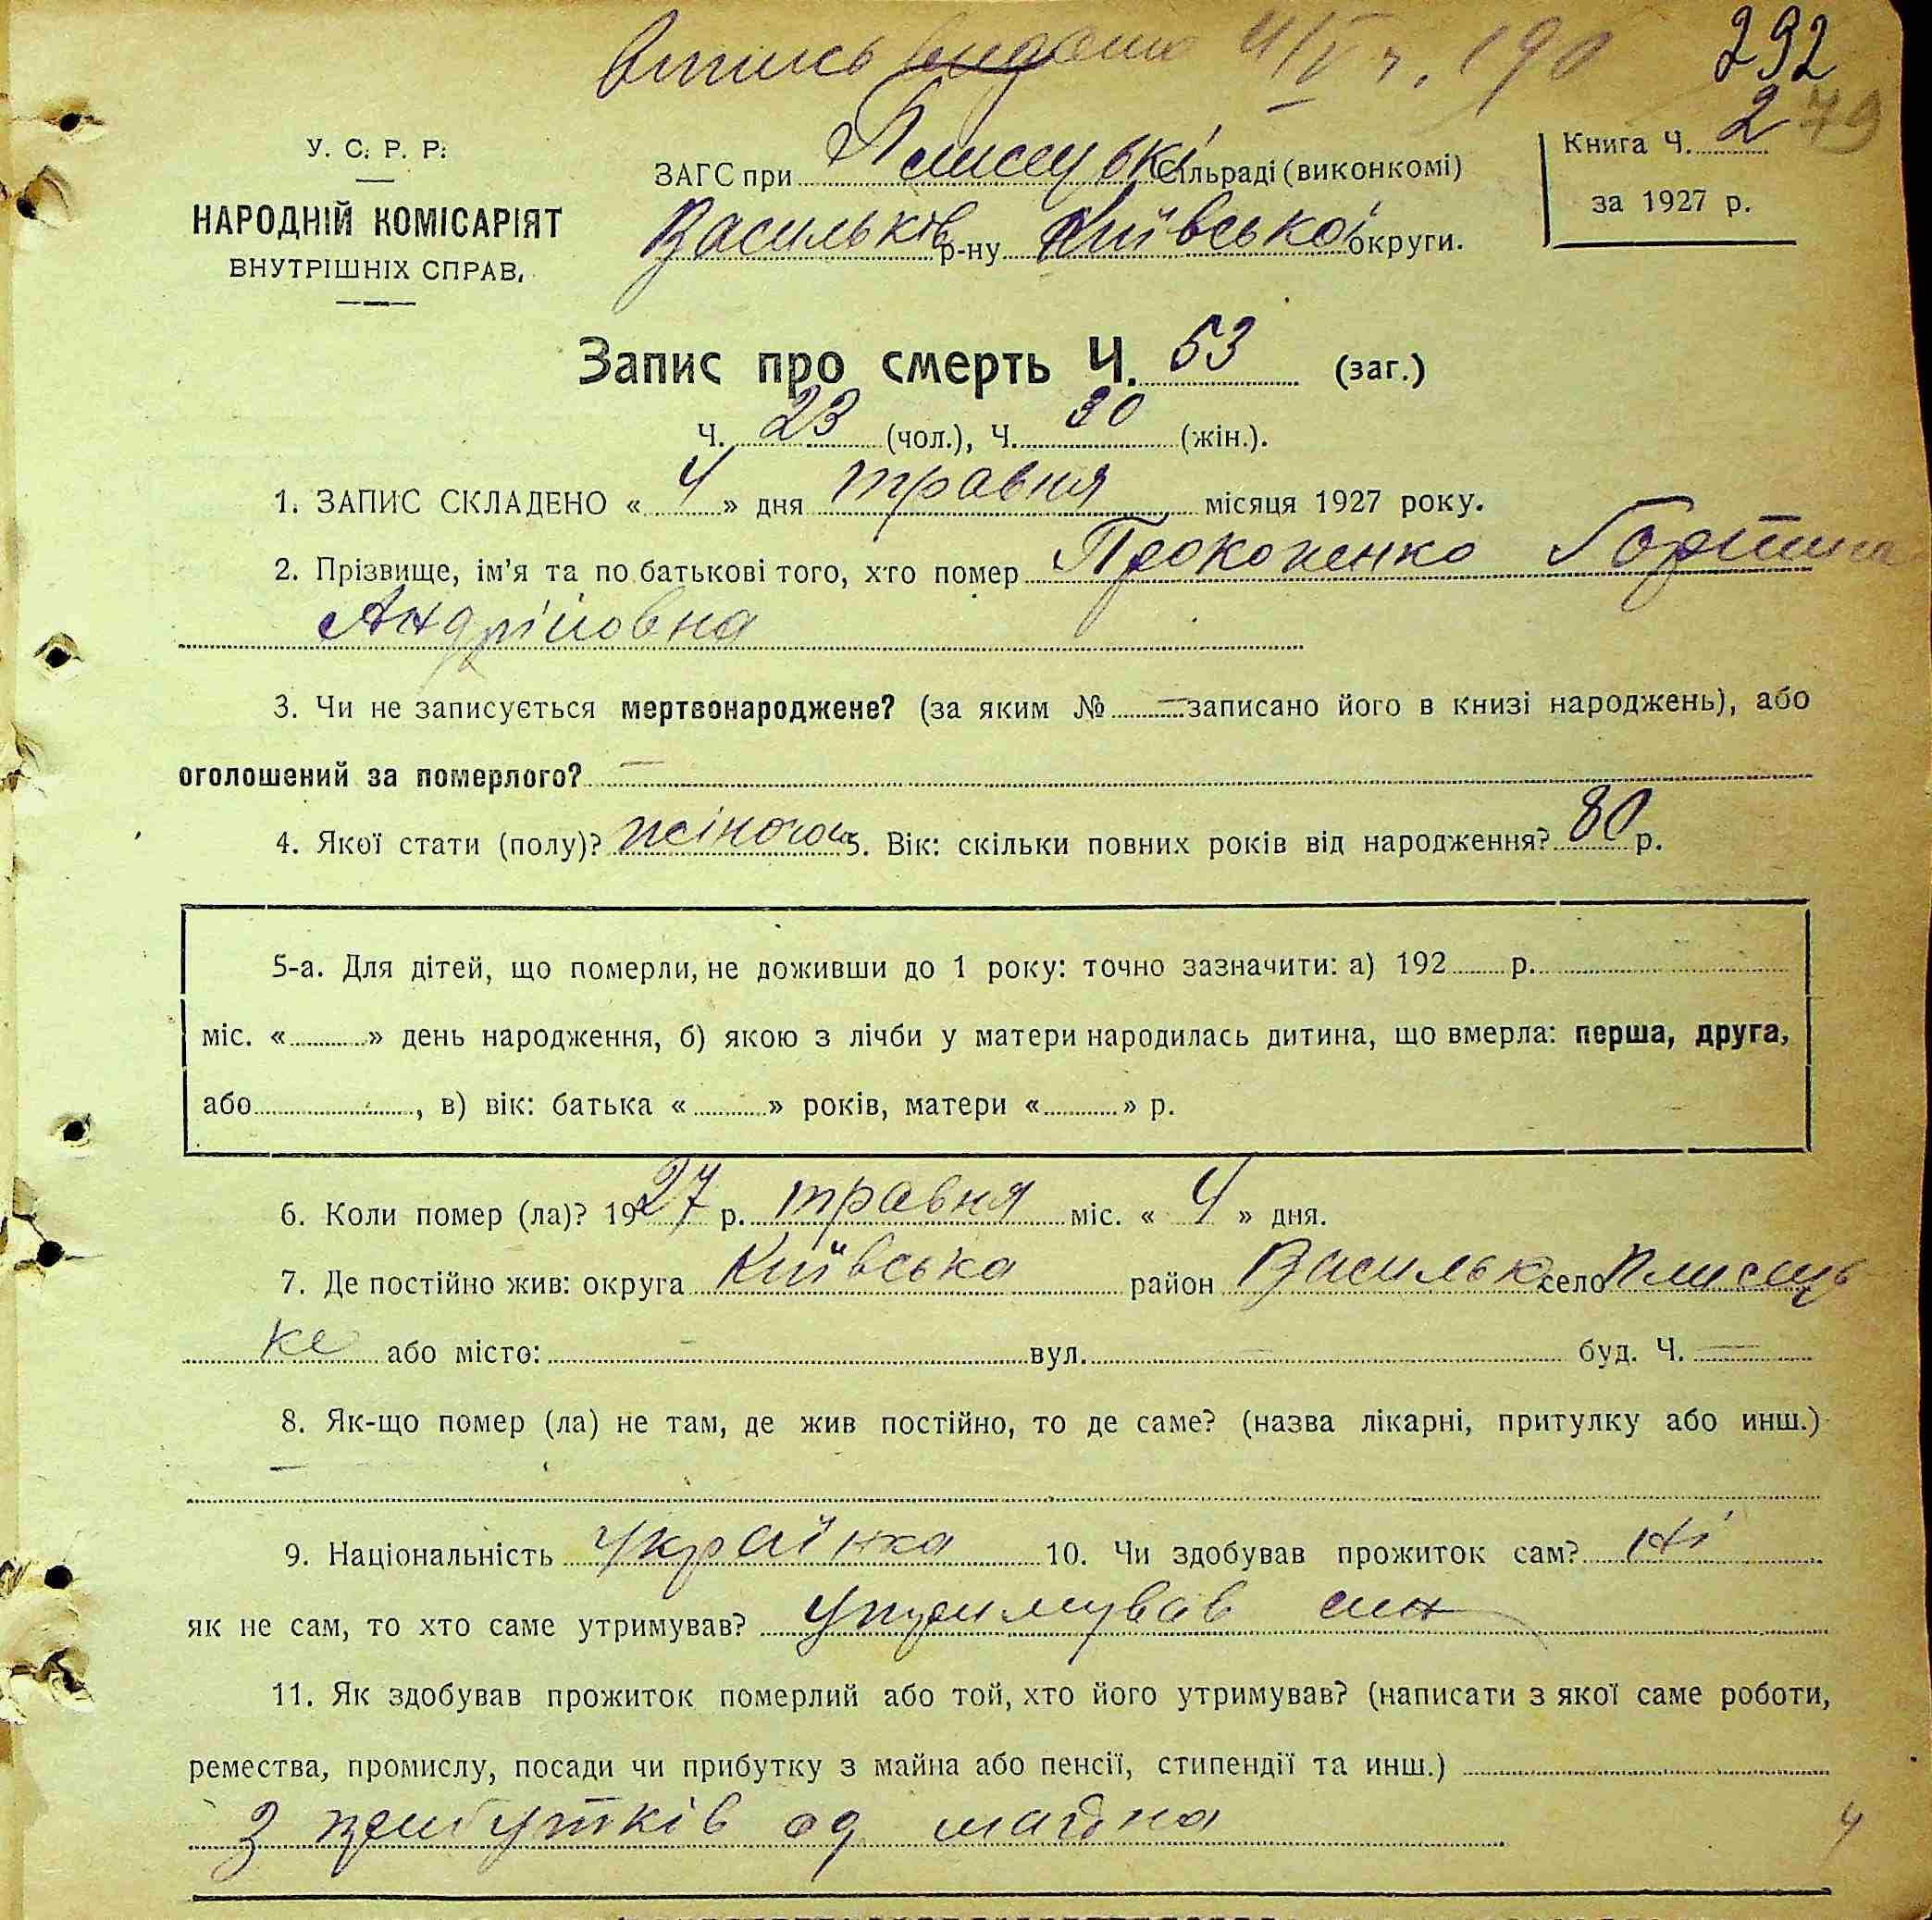 Впись видана 4/V
292
279
У. С. Р. Р.
НАРОДНІЙ КОМІСАРІЯТ
ВНУТРІШНІХ СПРАВ.
ЗАГС при Плисецькі сільраді (виконкомі)
Васильків р-ну Київської округи.
Книга Ч. 2
за 1927 р.
Запис про смерть Ч. 53 (заг.)
Ч. 23 (чол.), Ч. 30 (жін.).
1. ЗАПИС СКЛАДЕНО « 4 » дня травня місяця 1927 року.
2. Прізвище, ім'я та по батькові того, хто помер Прокопенко Горпина
Андрійовна
3. Чи не записується мертвонароджене? (за яким № — записано його в книзі народжень), або
оголошений за померлого? —
4. Якої стати (полу)? жіночої 5. Вік: скільки повних років від народження? 80 р.
5-а. Для дітей, що померли, не доживши до 1 року: точно зазначити: а) 192 р.
міс. « » день народження, б) якою з лічби у матери народилась дитина, що вмерла: перша, друга,
або , в) вік: батька « » років, матери « » р.
6. Коли помер (ла)? 1927 р. травня міс. « 4 » дня.
7. Де постійно жив: округа Київська район Васильк село Плисець
ке або місто: — вул. — буд. Ч. —
8. Як-що помер (ла) не там, де жив постійно, то де саме? (назва лікарні, притулку або инш.)
—
9. Національність українка 10. Чи здобував прожиток сам? Ні
як не сам, то хто саме утримував? утримував син
11. Як здобував прожиток померлий або той, хто його утримував? (написати з якої саме роботи,
ремества, промислу, посади чи прибутку з майна або пенсії, стипендії та инш.)
З прибутків од майна
4